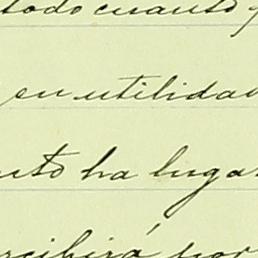 todo cuanto
su utilidad
ha lugar
recibirá por